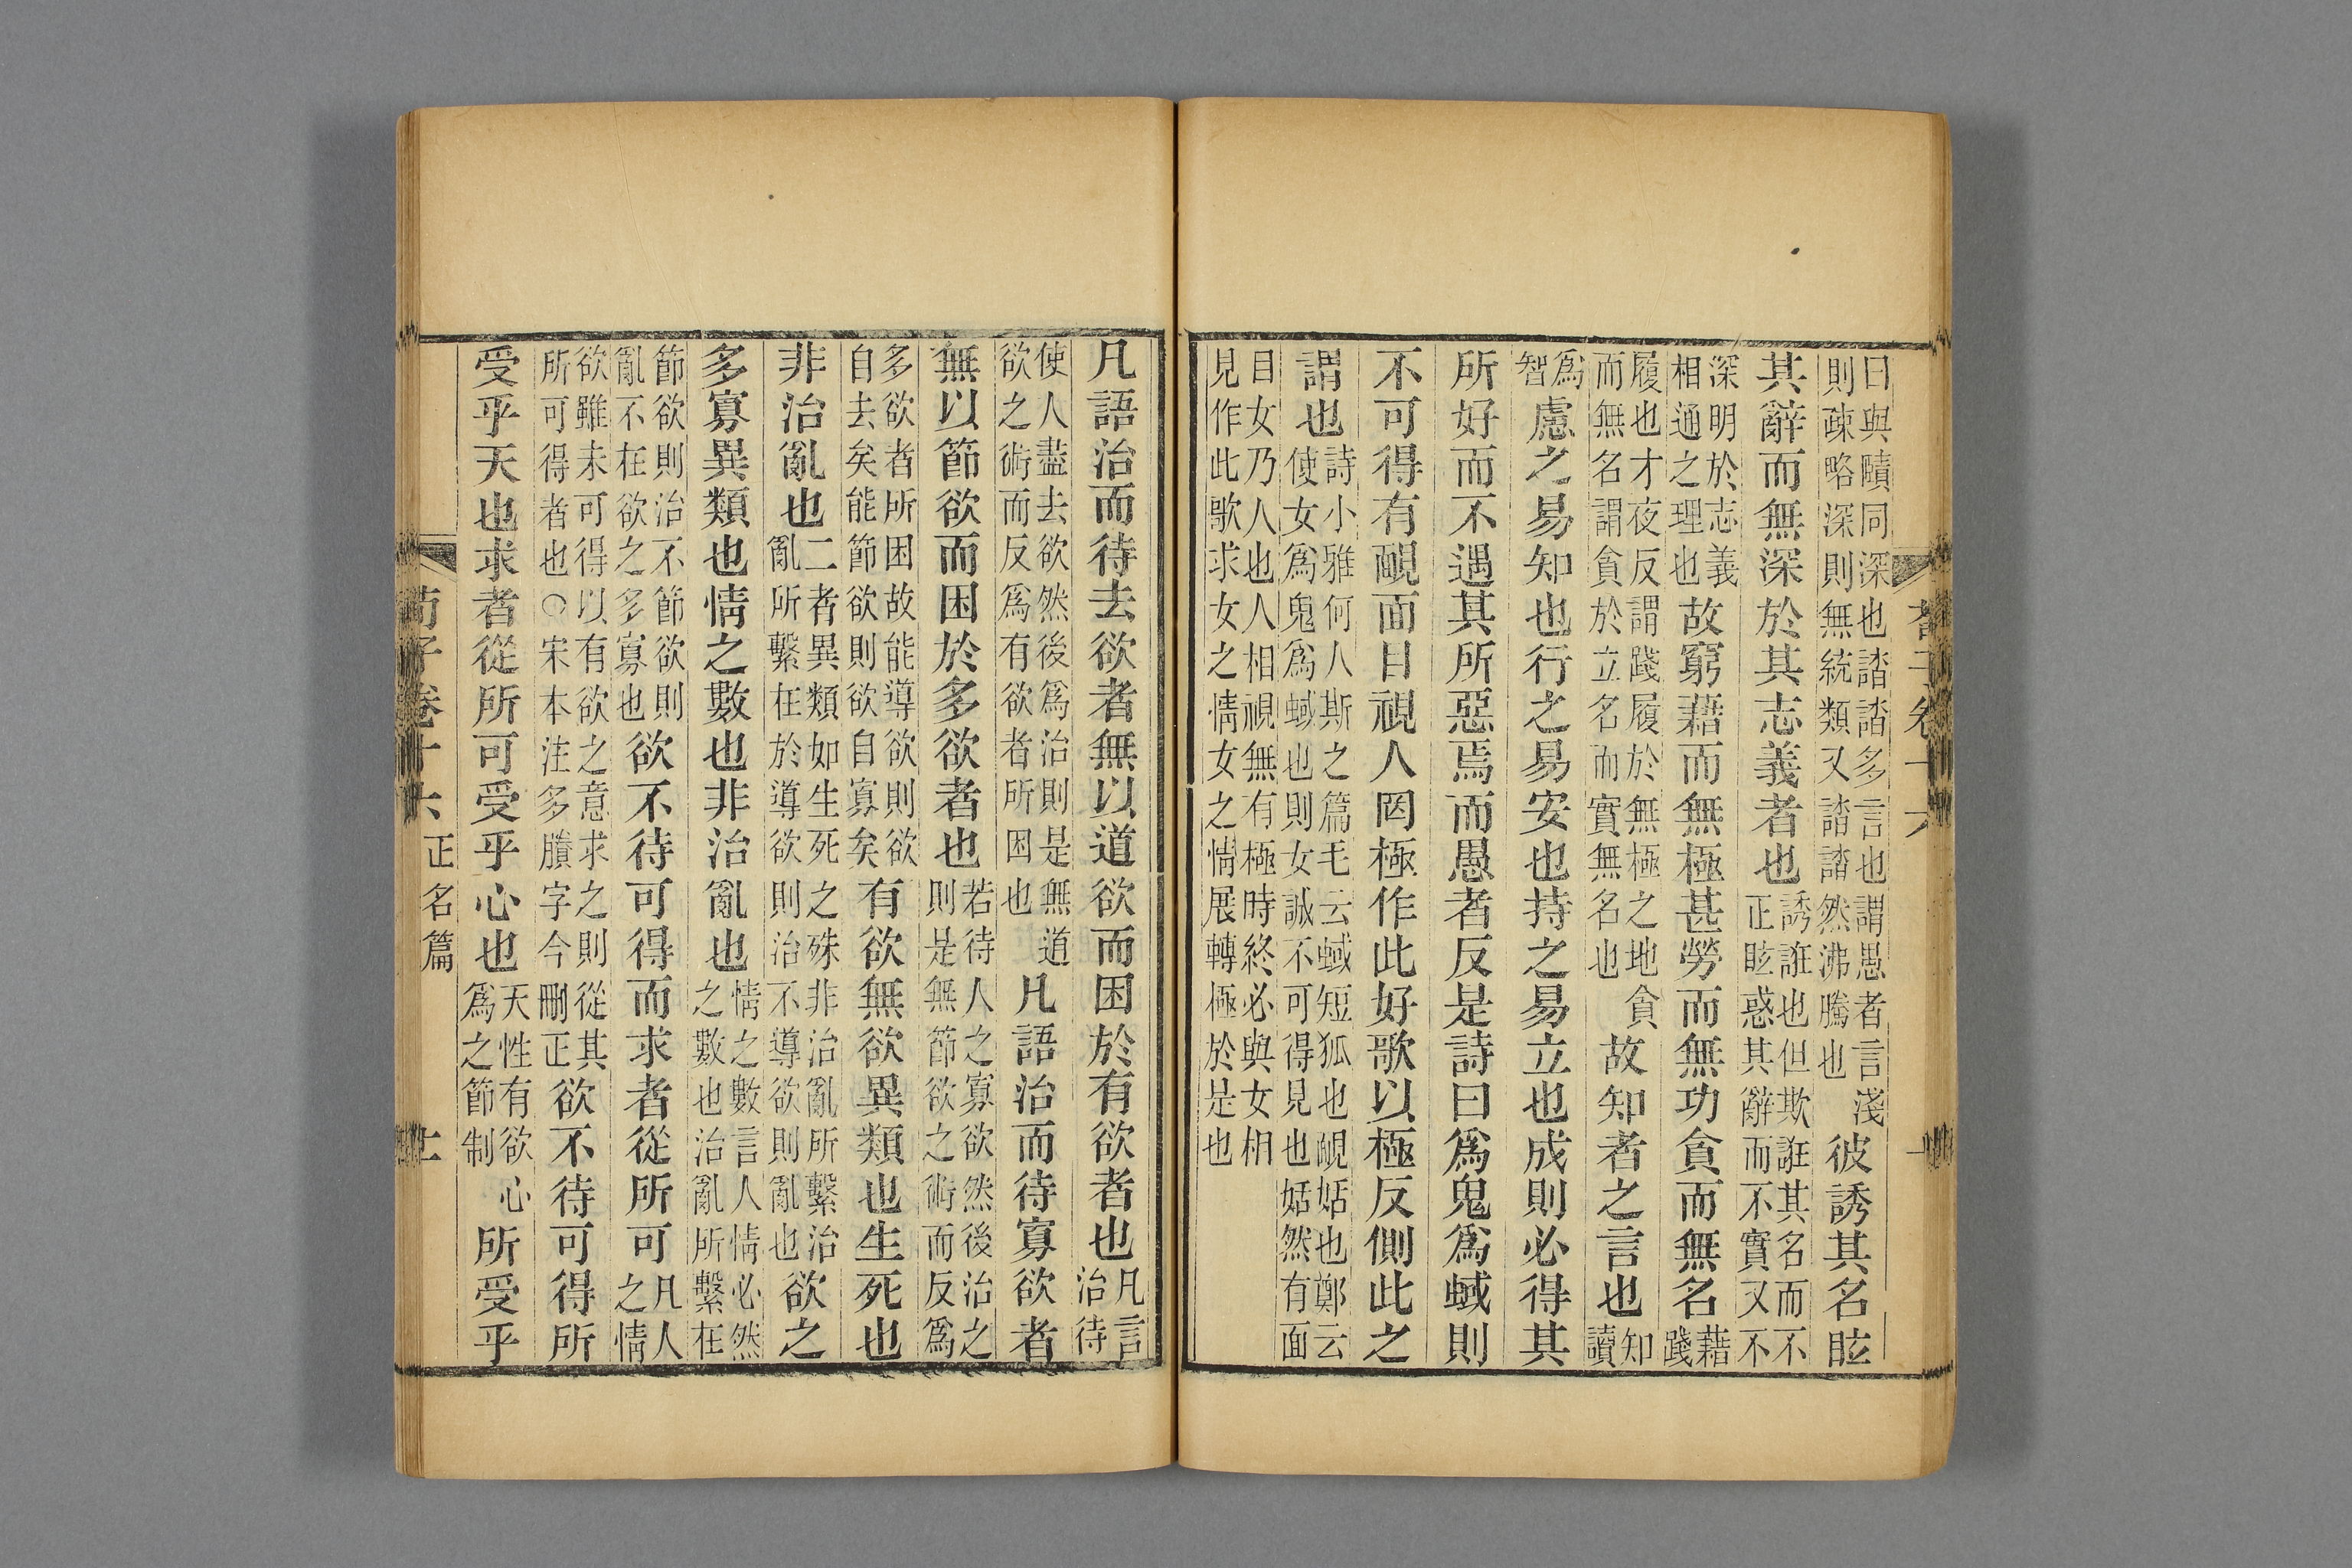 曰與賾同深也誻誻多言也謂愚者言淺
則疎略深則無統類又誻誻然沸騰也
彼誘其名眩
其辭而無深於其志義者也
誘誑也但欺誑其名而不
正眩惑其辭而不實又不
深明於志義
相通之理也
故窮藉而無極甚勞而無功貪而無名
藉
踐
履也才夜反謂踐履於無極之地貪
而無名謂貪於立名而實無名也
故知者之言也
知
讀
爲
智
慮之易知也行之易安也持之易立也成則必得其
所好而不遇其所惡焉而愚者反是詩曰爲鬼爲蜮則
不可得有靦面目視人罔極作此好歌以極反側此之
謂也
詩小雅何人斯之篇毛云蜮短狐也靦姡也鄭云
使女爲鬼爲蜮也則女誠不可得見也姡然有面
目女乃人也人相視無有極時終必與女相
見作此歌求女之情女之情展轉極於是也
凡語治而待去欲者無以道欲而困於有欲者也
凡言
治待
使人盡去欲然後爲治則是無道
欲之術而反爲有欲者所困也
凡語治而待寡欲者
無以節欲而困於多欲者也
若待人之寡欲然後治之
則是無節欲之術而反爲
多欲者所困故能導欲則欲
自去矣能節欲則欲自寡矣
有欲無欲異類也生死也
非治亂也
二者異類如生死之殊非治亂所繫治
亂所繫在於導欲則治不導欲則亂也
欲之
多寡異類也情之數也非治亂也
情之數言人情必然
之數也治亂所繫在
節欲則治不節欲則
亂不在欲之多寡也
欲不待可得而求者從所可
凡人
之情
欲雖未可得以有欲之意求之則從其
所可得者也○宋本注多賸字今刪正
欲不待可得所
受乎天也求者從所可受乎心也
天性有欲心
爲之節制
所受乎
荀子卷十六
正名篇